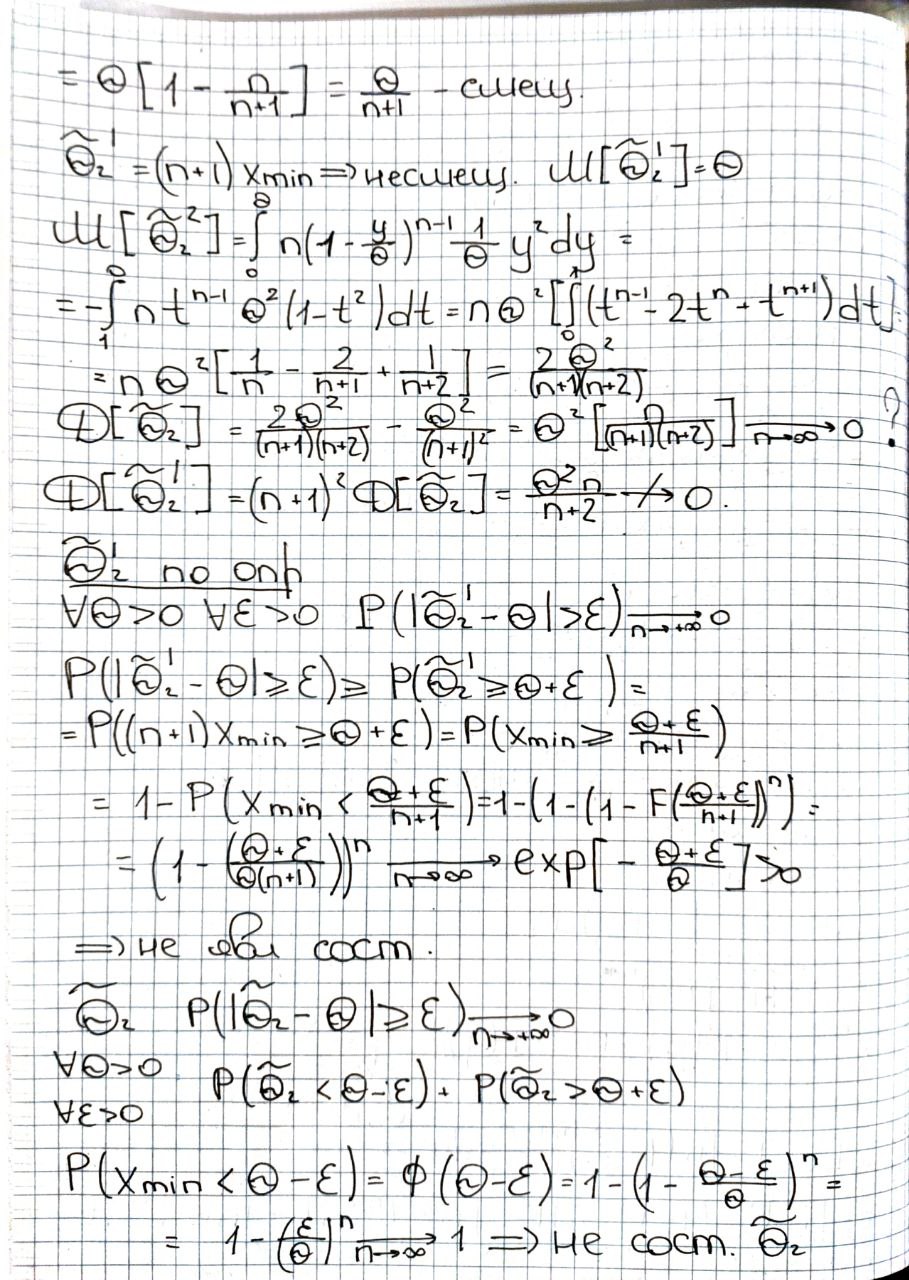 = Θ[1 - n/(n+1)] = Θ/(n+1) - смещ.
Θ̃₂' = (n+1) xmin ⇒ несмещ. M[Θ̃₂'] = Θ
M[Θ̃₂²] = ∫₀^Θ n(1 - y/Θ)^(n-1) 1/Θ y² dy =
= -∫₁⁰ n t^(n-1) Θ² (1-t²) dt = n Θ² [∫₀¹ (t^(n-1) - 2t^n + t^(n+1)) dt]
= n Θ² [1/n - 2/(n+1) + 1/(n+2)] = 2Θ²/((n+1)(n+2))
D[Θ̃₂] = 2Θ²/((n+1)(n+2)) - Θ²/(n+1)² = Θ² [n/((n+1)(n+2))] →(n→∞) 0 ?
D[Θ̃₂'] = (n+1)² D[Θ̃₂] = Θ²n/(n+2) ↛ 0.
Θ̃₂' по опр
∀Θ>0 ∀ε>0 P(|Θ̃₂' - Θ|>ε) →(n→+∞) 0
P(|Θ̃₂' - Θ|≥ε) ≥ P(Θ̃₂' ≥ Θ+ε) =
= P((n+1) xmin ≥ Θ+ε) = P(xmin ≥ (Θ+ε)/(n+1))
= 1 - P(xmin < (Θ+ε)/(n+1)) = 1-(1-(1-F((Θ+ε)/(n+1))^n) =
= (1 - ((Θ+ε)/(Θ(n+1))))^n →(n→∞) exp[- (Θ+ε)/Θ] > 0
⇒ не явл сост.
Θ̃₂ P(|Θ̃₂ - Θ|≥ε) →(n→+∞) 0
∀Θ>0 P(Θ̃₂ < Θ-ε) + P(Θ̃₂ > Θ+ε)
∀ε>0
P(xmin < Θ-ε) = Φ(Θ-ε) = 1-(1 - (Θ-ε)/Θ)^n =
= 1-(ε/Θ)^n →(n→∞) 1 ⇒ не сост. Θ̃₂